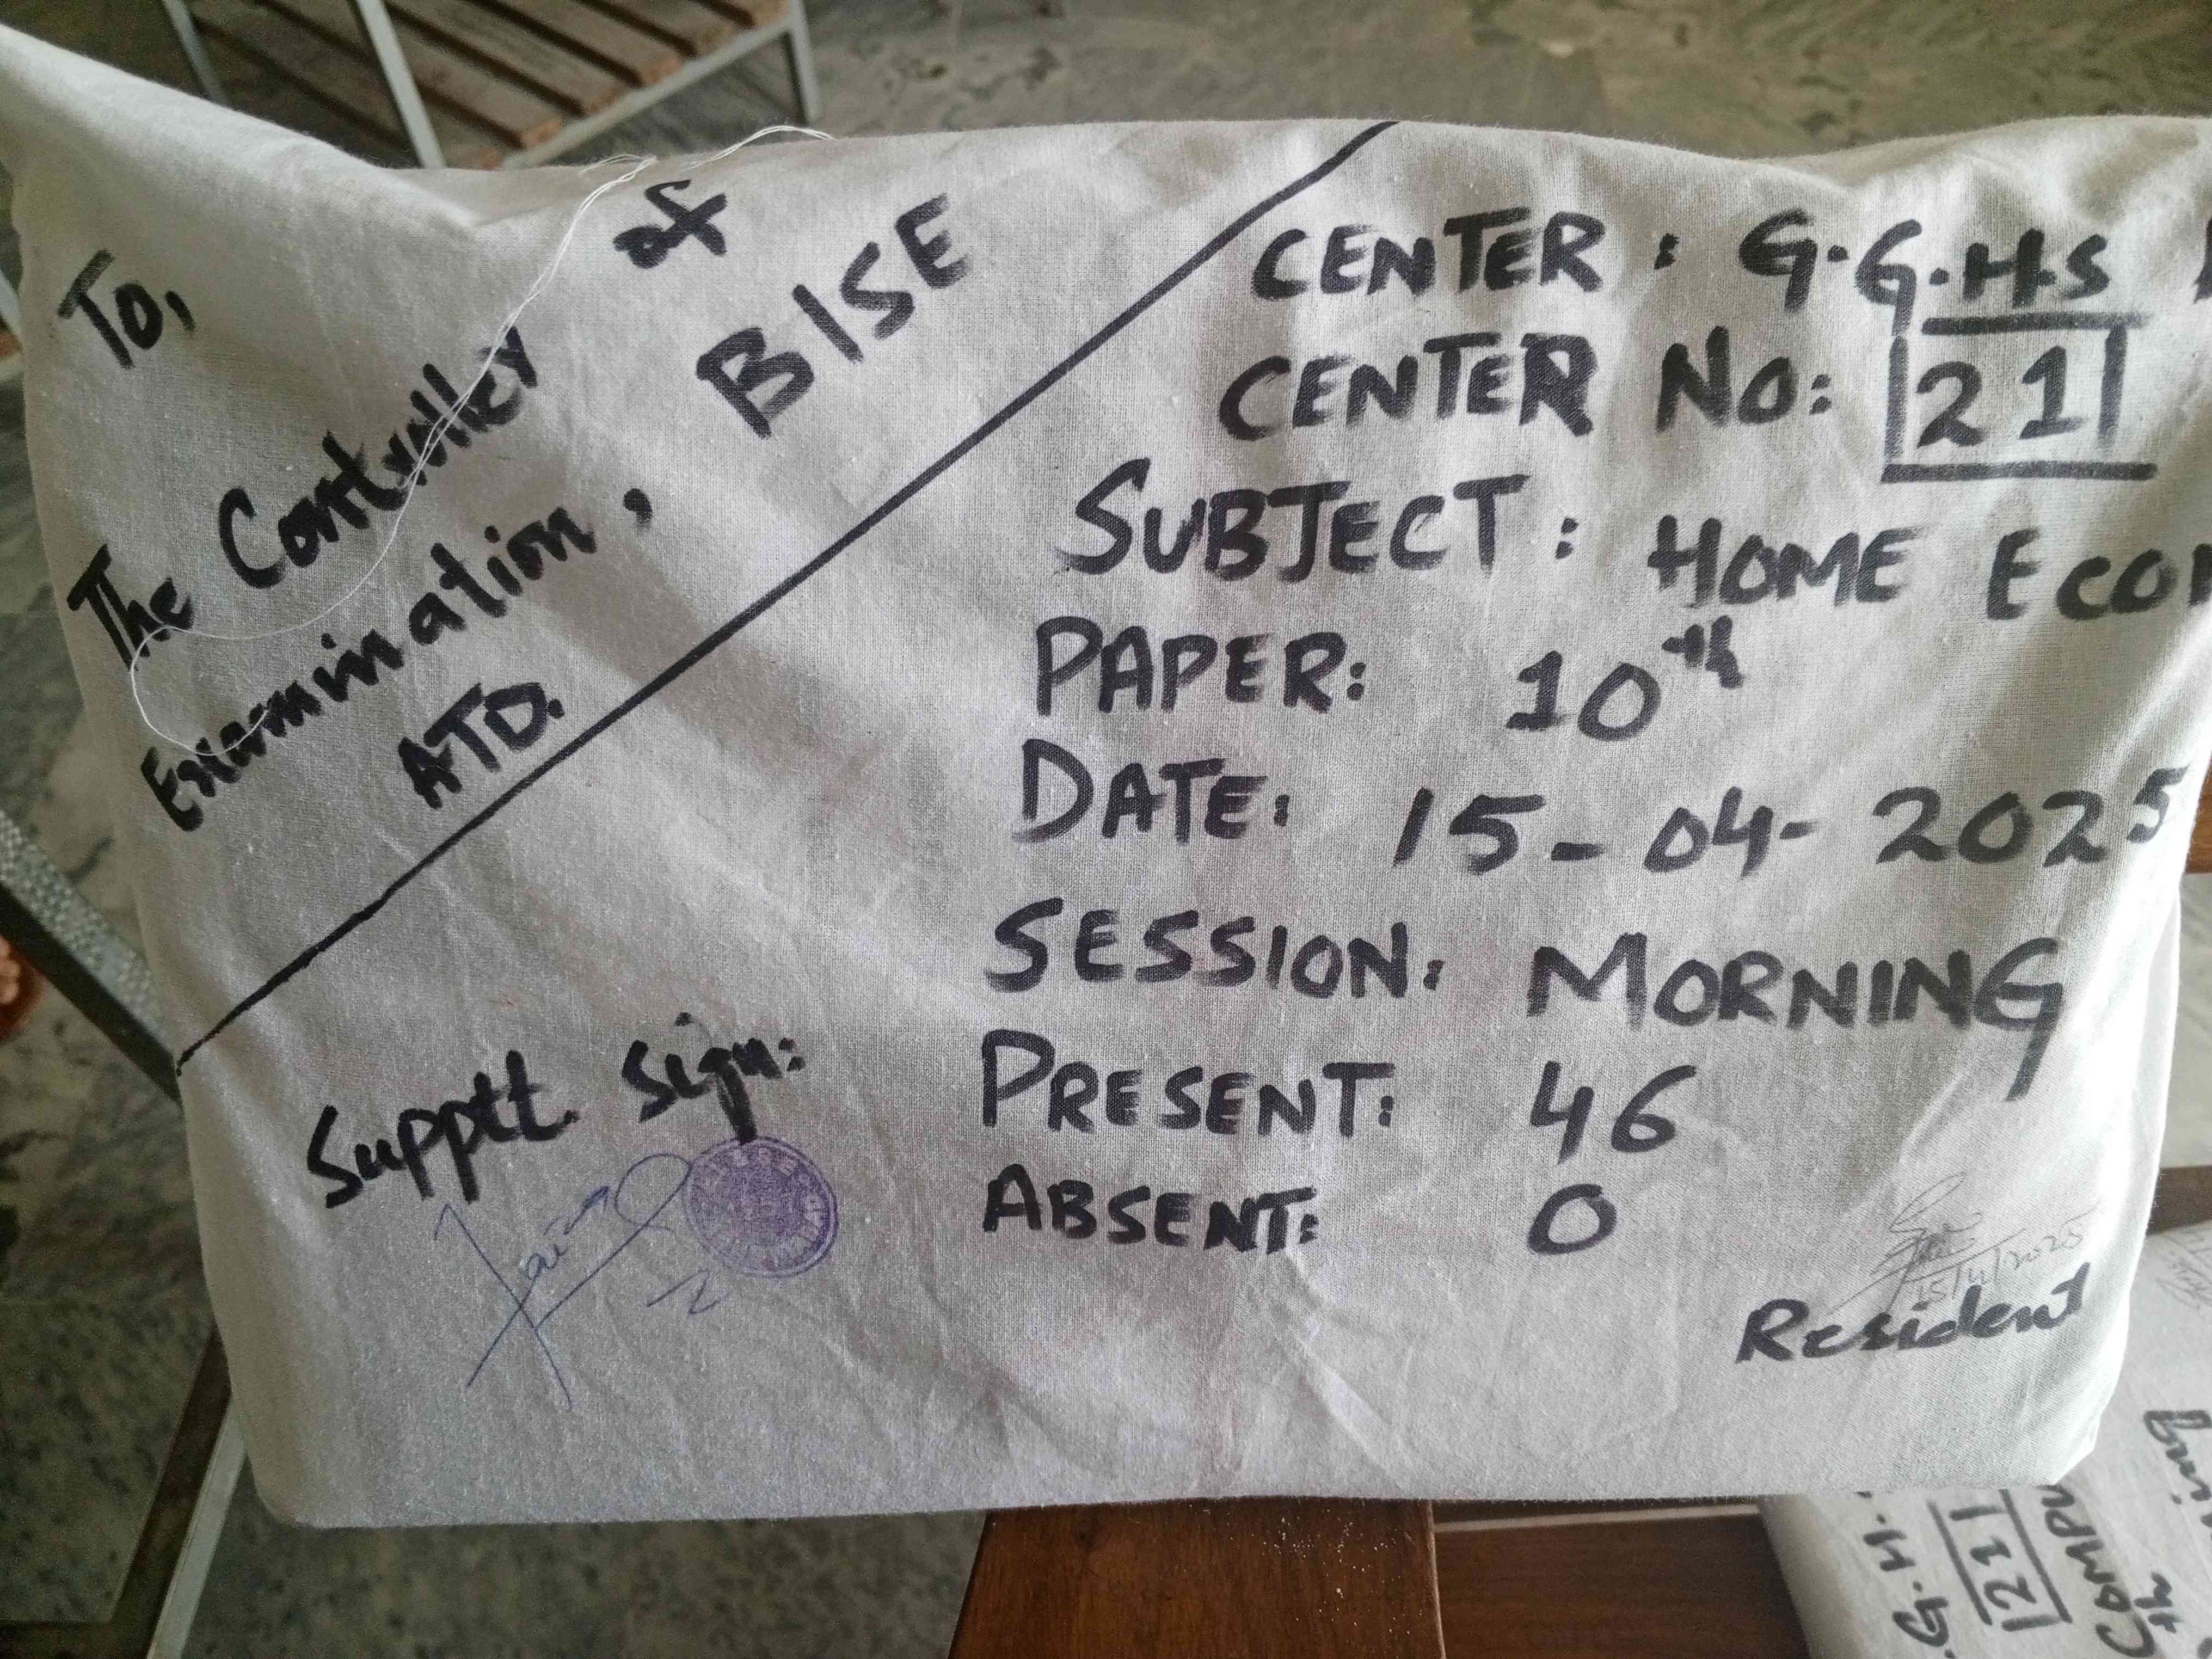 To,
The Controller of
Examination, BISE
ATD.
CENTER: G.G.H.S
CENTER NO: 21
SUBJECT: HOME ECO
PAPER: 10th
DATE: 15-04-2025
SESSION: MORNING
PRESENT: 46
ABSENT: 0
Supptt. Sign:
15/4/2025
Resident
G.H.
21
COMPU
th